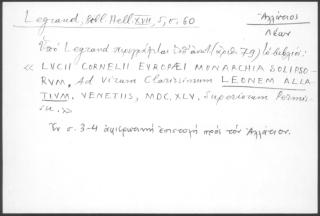 Legrand, Bibl. Hell. XVII, 5, σ. 60
Ἀλλάτιος
Λέων
Ὑπὸ Legrand περιγράφεται (ἀριθ. 79) τὸ βιβλίον:
« LVCII CORNELII EVROPAEI MONARCHIA SOLIPSO-
RVM, Ad Virum Clarissimum LEONEM ALLA
TIVM. VENETIIS, MDC.XLV. Superiorum Permis-
su. »
Ἐν σ. 3-4 ἀφιερωτικὴ ἐπιστολὴ πρὸς τὸν Ἀλλάτιον.